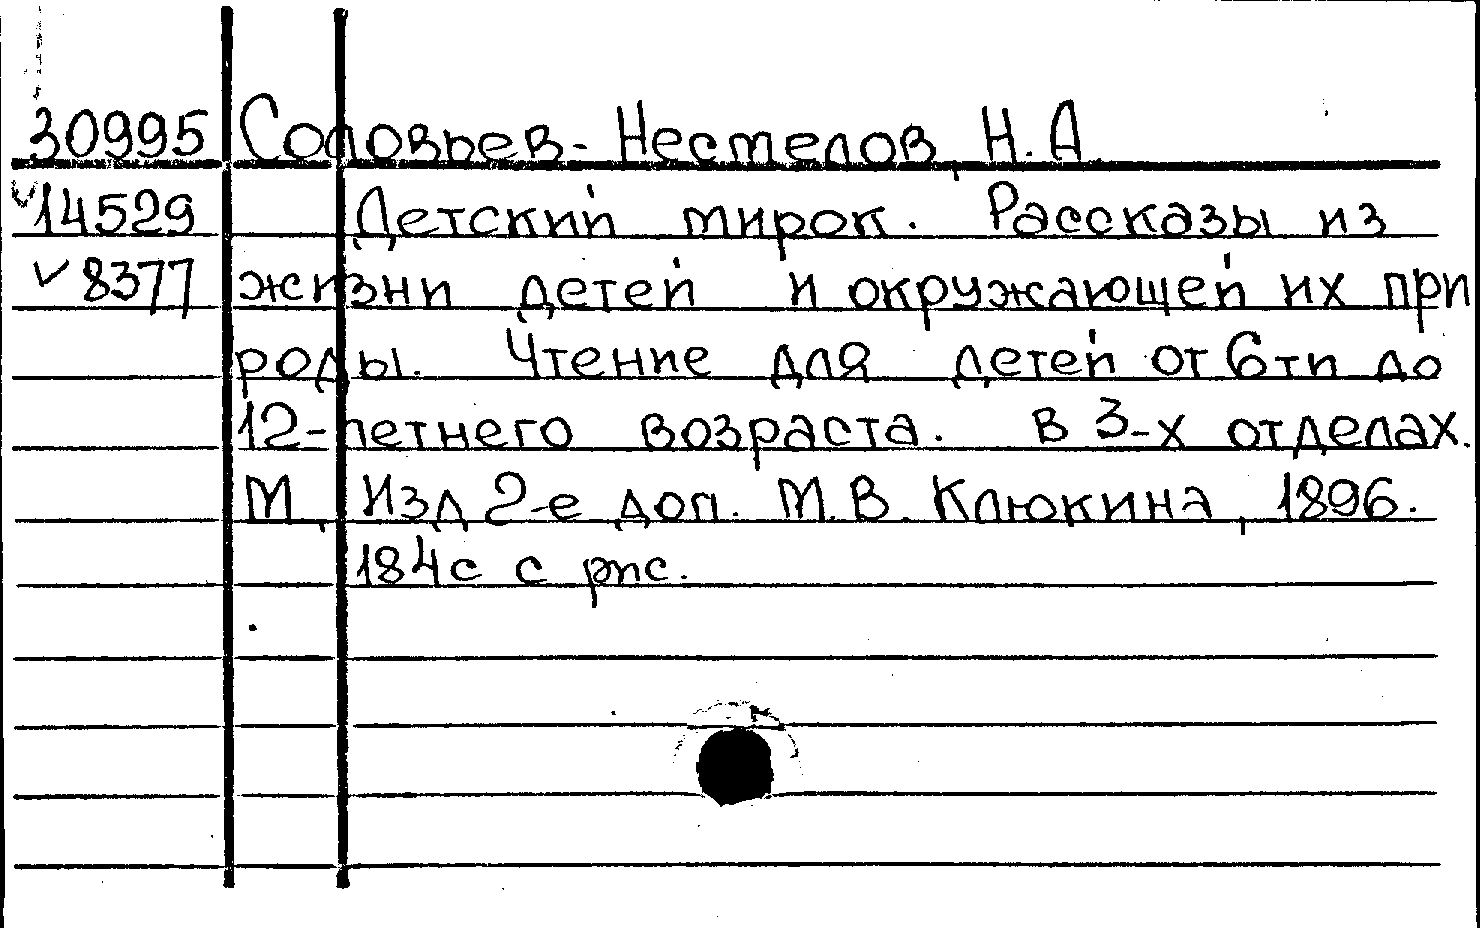 30995 Соловьев-Нестелов, Н.А.
✓14529 Детский мирок. Рассказы из
✓8377 жизни детей и окружающей их при
роды. Чтение для детей от 6ти до
12-летнего возраста. В 3-х отделах.
М, Изд 2-е доп. М.В. Клюкина, 1896.
184с с рис.